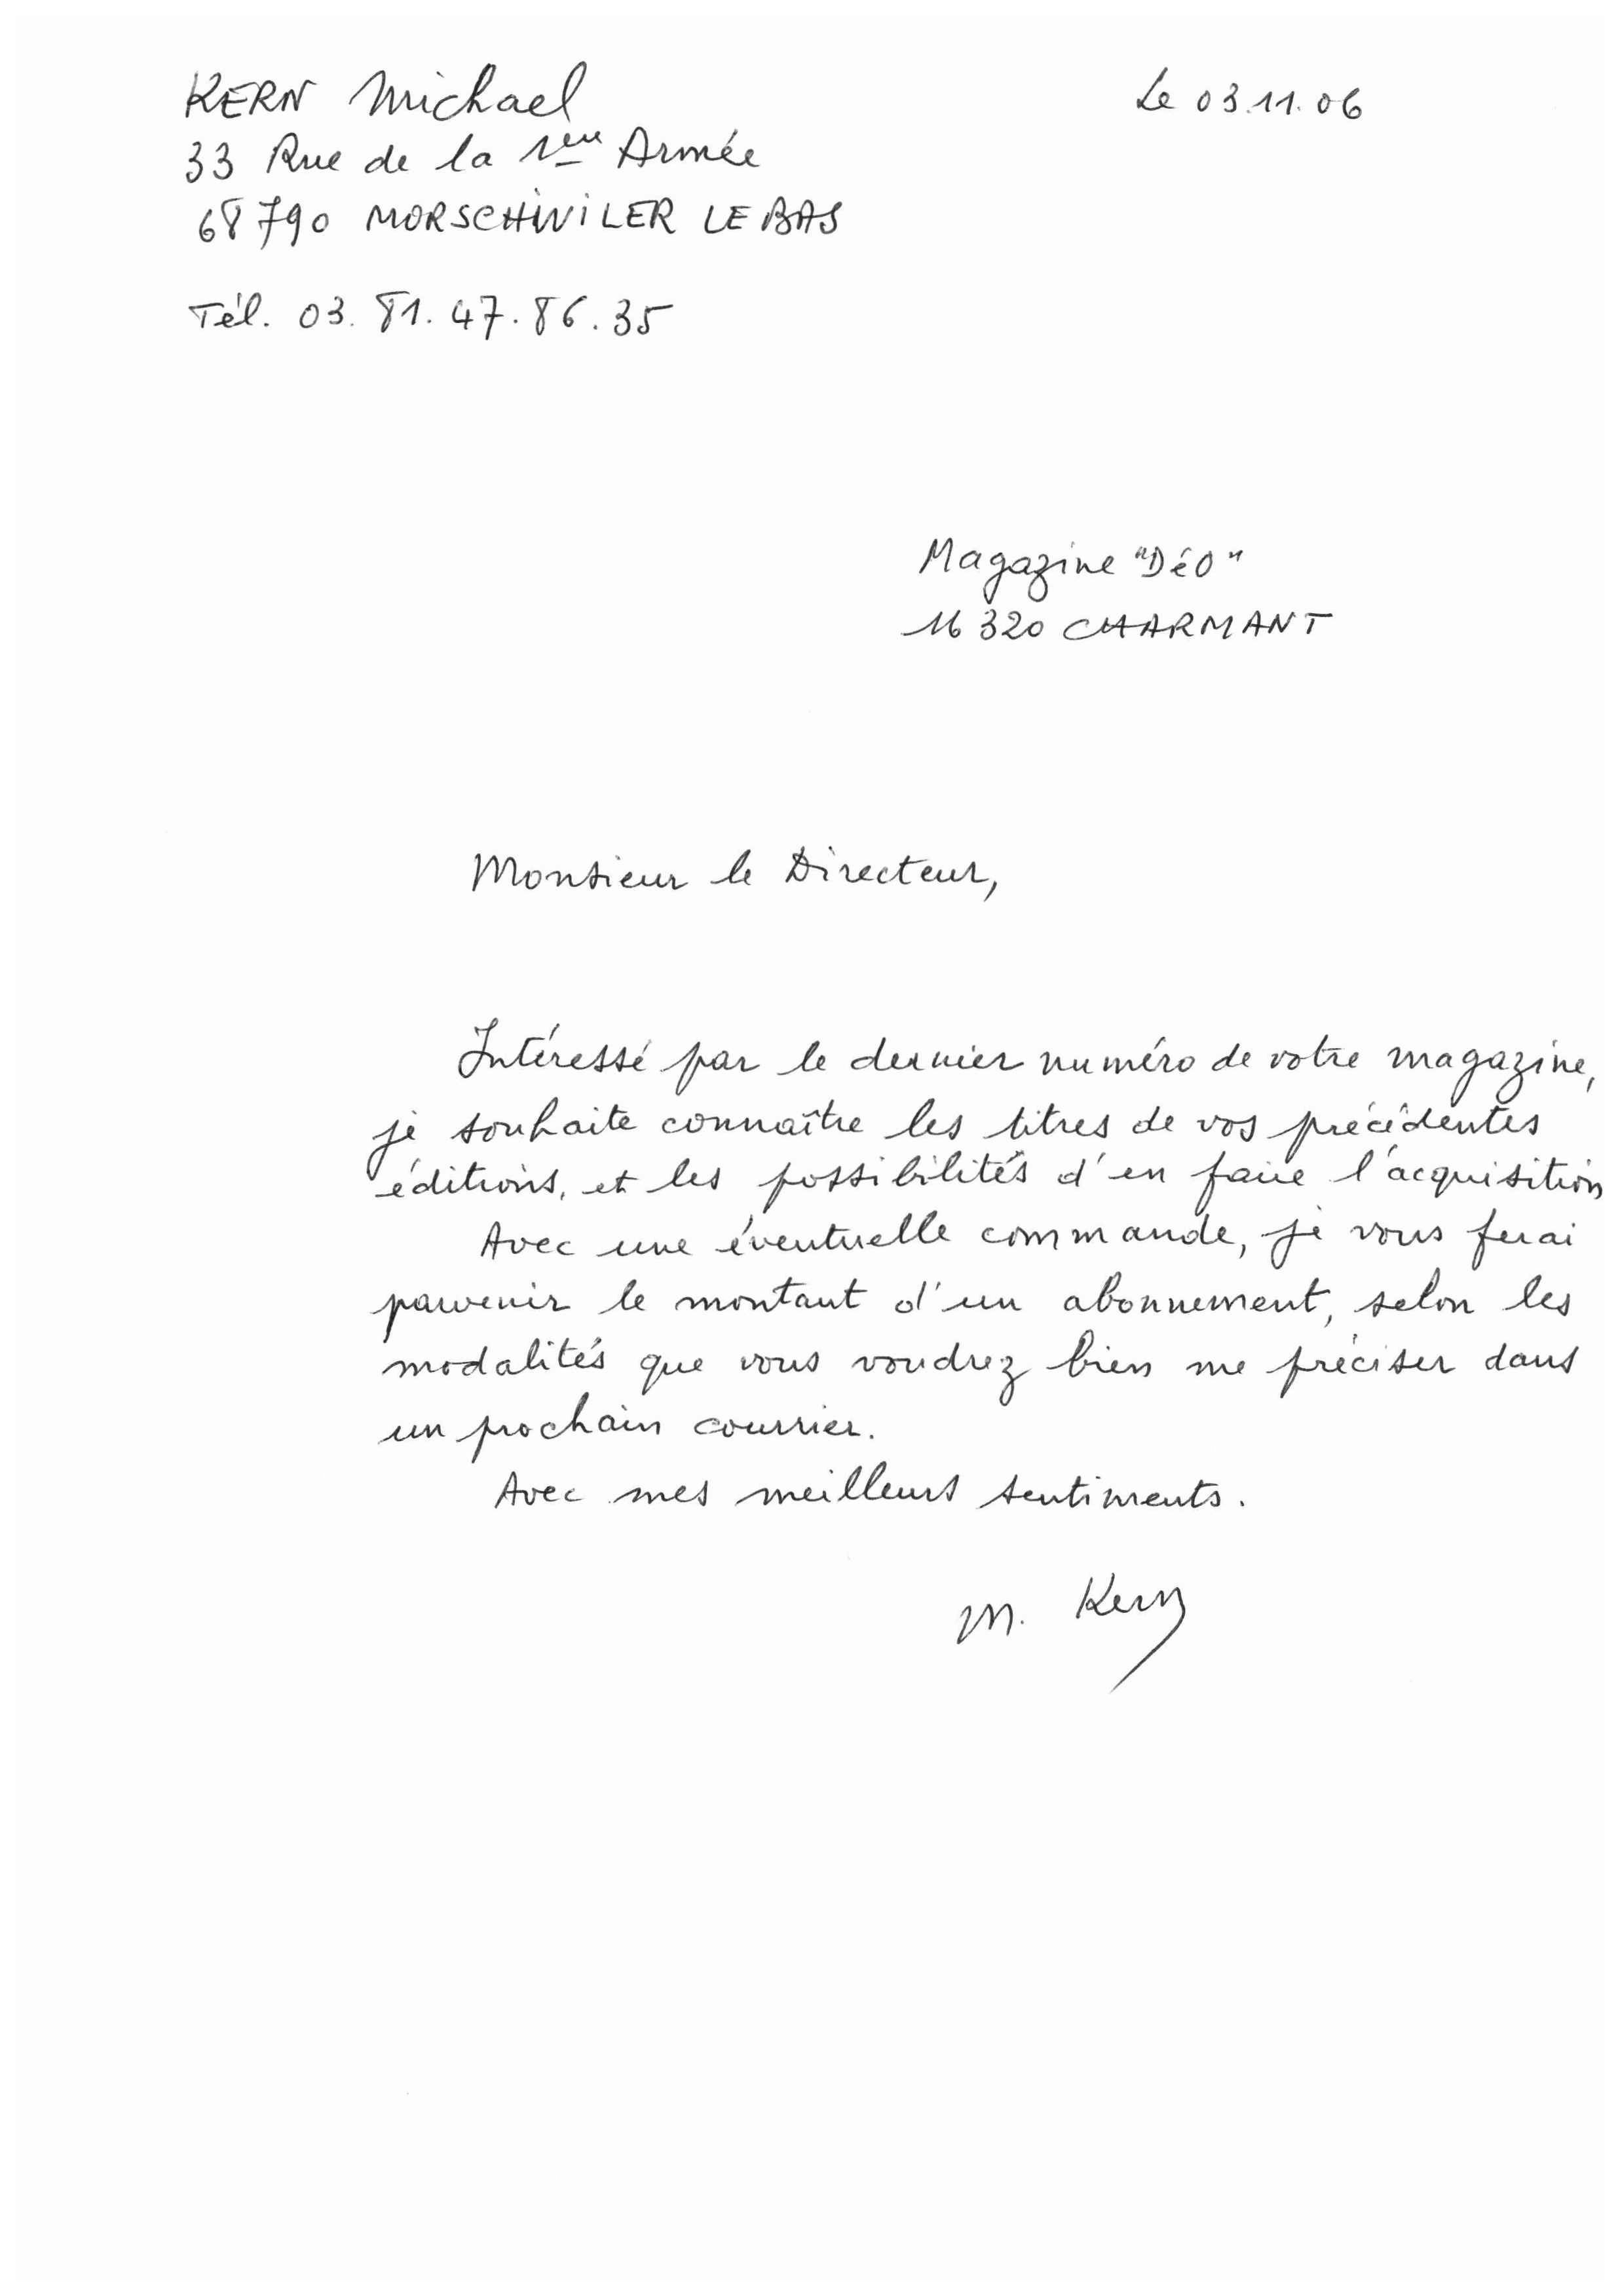 KERN Michael
Le 03.11.06
33 Rue de la 1ère Armée
68790 MORSCHWILER LE BAS
Tél. 03. 81. 47. 86. 35
Magazine "DéO"
16320 CHARMANT
Monsieur le Directeur,
Intéressé par le dernier numéro de votre magazine,
je souhaite connaître les titres de vos précédentes
éditions, et les possibilités d'en faire l'acquisition
Avec une éventuelle commande, je vous ferai
parvenir le montant d'un abonnement, selon les
modalités que vous voudrez bien me préciser dans
un prochain courrier.
Avec mes meilleurs sentiments.
M. Kern